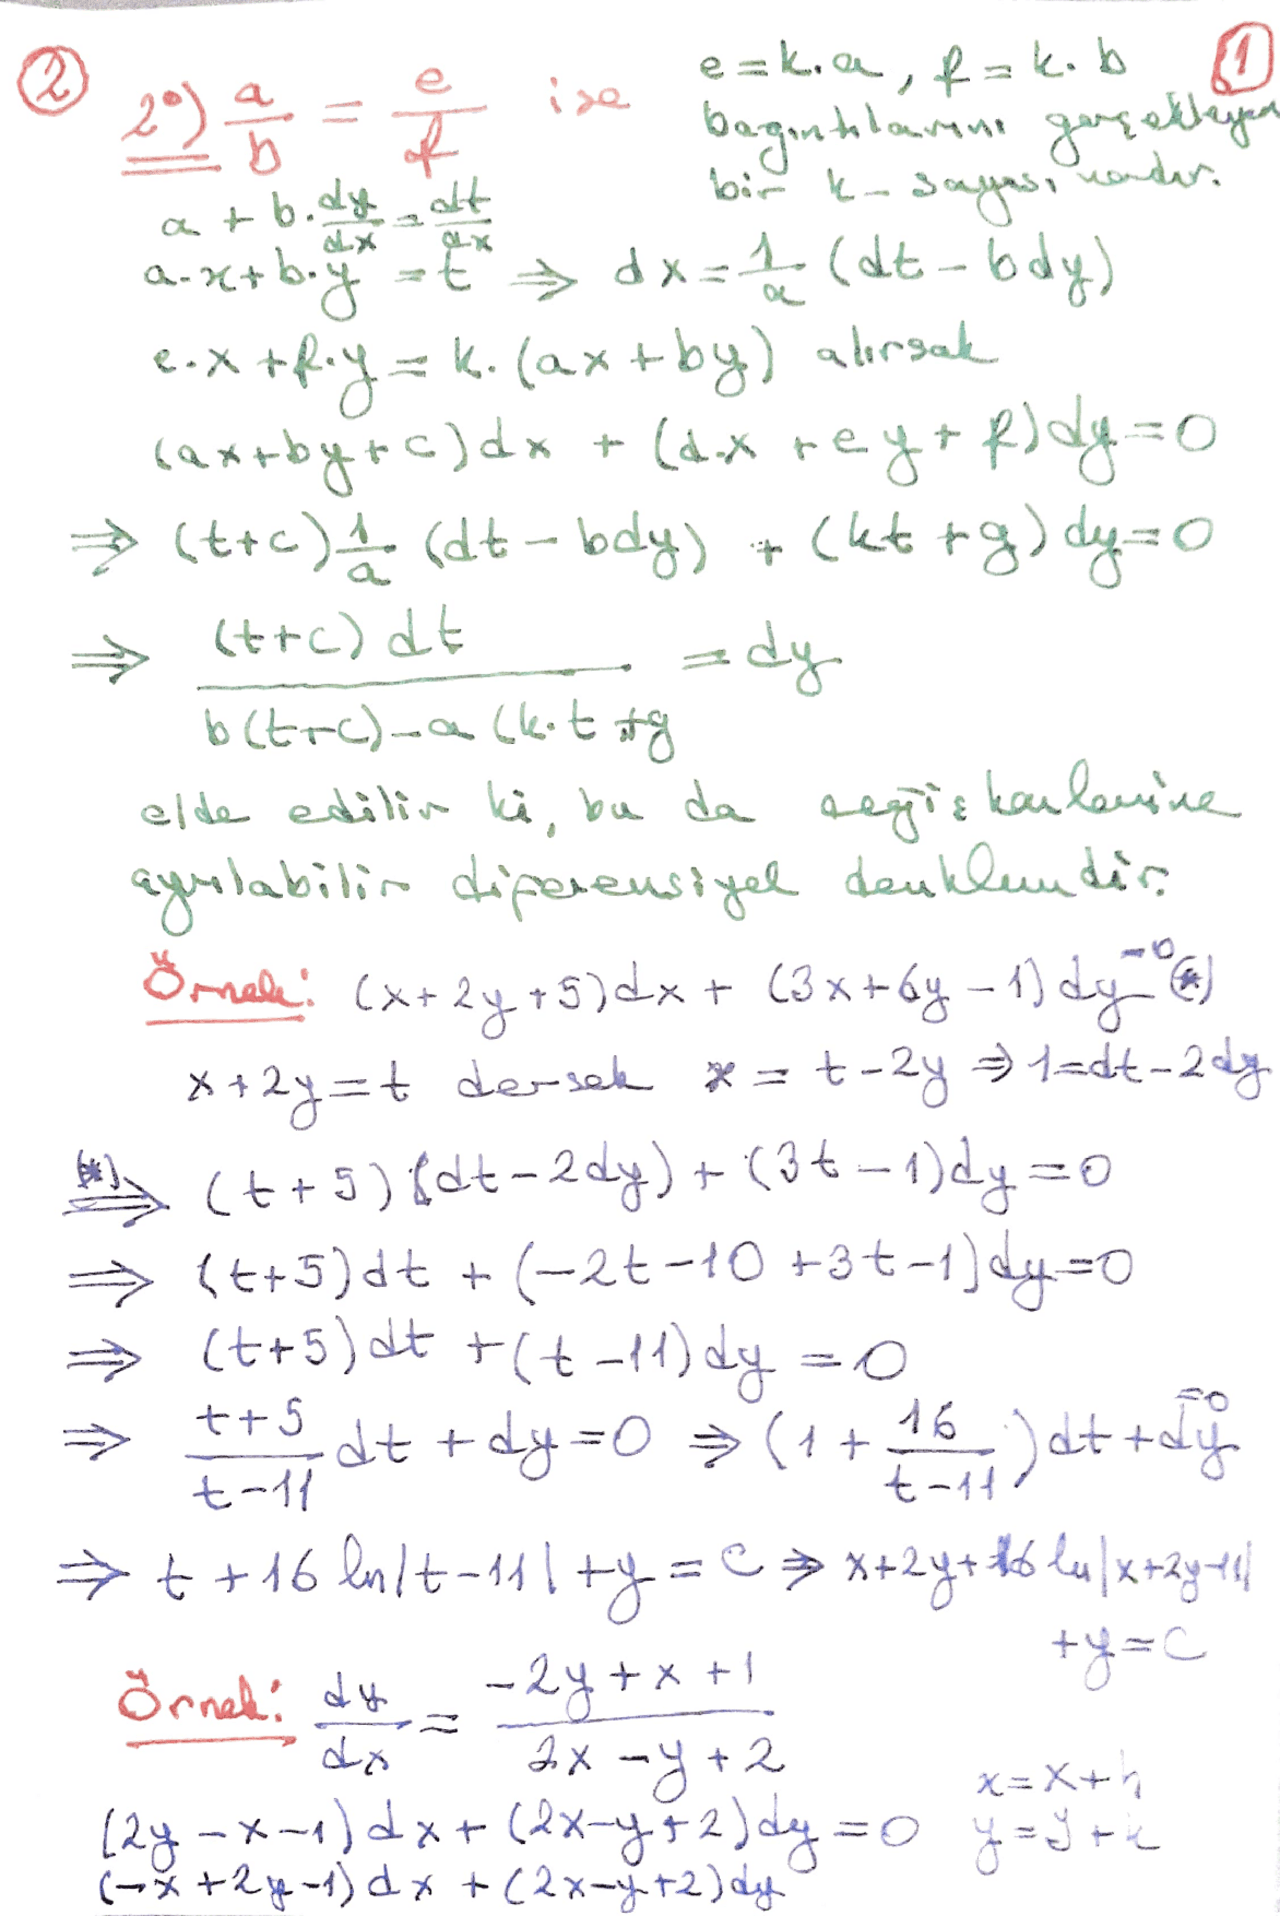 ② 2°) a/b = e/f ise e = k.a, f = k.b ①
bağıntılarını gerçekleyen
bir k- sayısı vardır.
a + b.dy/dx = dt/dx
a.x + b.y = t ⇒ dx = 1/a (dt - bdy)
e.x + f.y = k.(ax + by) alırsak
(ax+by+c)dx + (d.x + ey + f)dy = 0
⇒ (t+c) 1/a (dt - bdy) + (kt + g)dy = 0
⇒ (t+c)dt / b(t+c) - a(k.t + g = dy
elde edilir ki, bu da değişkenlerine
ayrılabilir diferensiyel denklemdir.
Örnek: (x + 2y + 5)dx + (3x + 6y - 1)dy = 0 (*)
x + 2y = t dersek x = t - 2y ⇒ 1 = dt - 2dy
(*) ⇒ (t + 5)(dt - 2dy) + (3t - 1)dy = 0
⇒ (t+5)dt + (-2t - 10 + 3t - 1)dy = 0
⇒ (t+5)dt + (t - 11)dy = 0
⇒ t+5/t-11 dt + dy = 0 ⇒ (1 + 16/t-11)dt + dy = 0
⇒ t + 16 ln|t - 11| + y = c ⇒ x + 2y + 16 ln|x + 2y - 11|
+ y = c
Örnek: dy/dx = -2y + x + 1 / 2x - y + 2
x = X + h
(2y - x - 1)dx + (2x - y + 2)dy = 0 y = Y + k
(-x + 2y - 1)dx + (2x - y + 2)dy